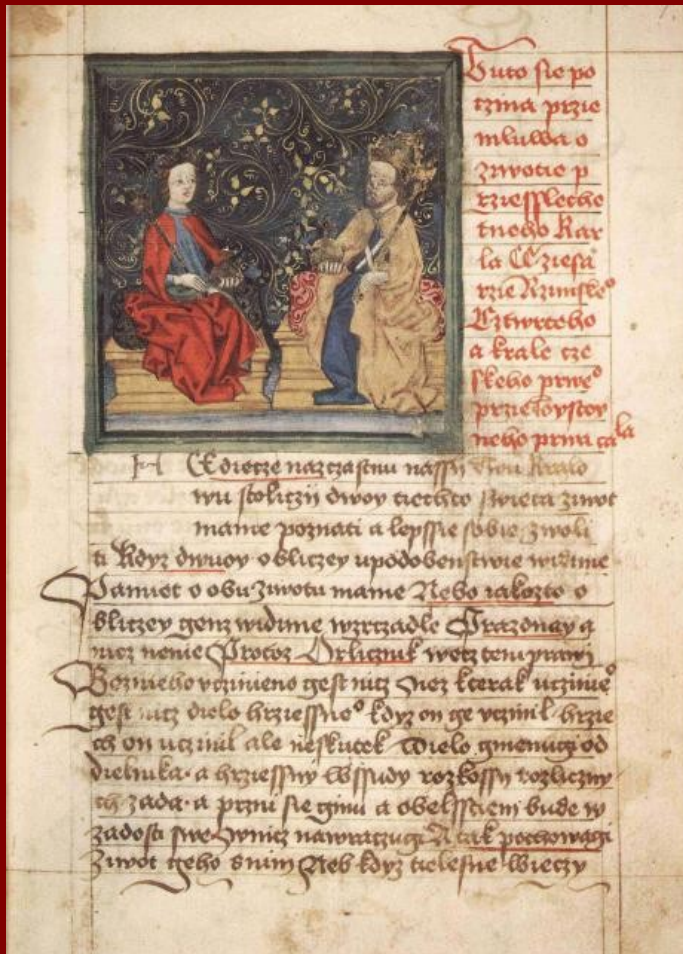 Tuto sie po
czina przie
mluwa o
ziwotie p
rziesslecho
tneho Kar
la Cziesa
rzie Rzimskeº
Cztwrteho
a krale cze
skeho prweº
przie
neho
nassy
wu stoliczy dwoy tiechto swieta ziwot
mame poznati a lepssie sobie zwoli
ti Kdyz dwuoy obliczey upodobenstwie widime
Pamiet o obu ziwotu mame Nebo iakozto o
bliczey genz widime wzrczadle Prazdnay a
nicz nenie Protoz Orlicznik wecz tem prawi
Bez nieho vczinieno gest nicz Nez kterak uczineº
gest nicz dielo hrziessneº kdyz on ge vczinil hrzie
ch on uczinil ale neskutek Dielo gmenugi od
dielnika a hrziessny wssudy rozkossy rozliczny
ch zada a przni sie ginu a obelsstiem bude w
zadosti swe wnicz nawraczugi A tak pochowagi
ziwot geho snim Neb kdyz tielesne wieczy